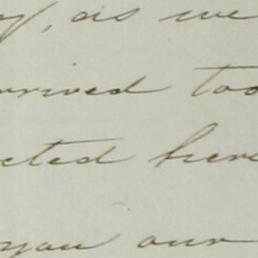 y, as we
rrived too
cted here
you our